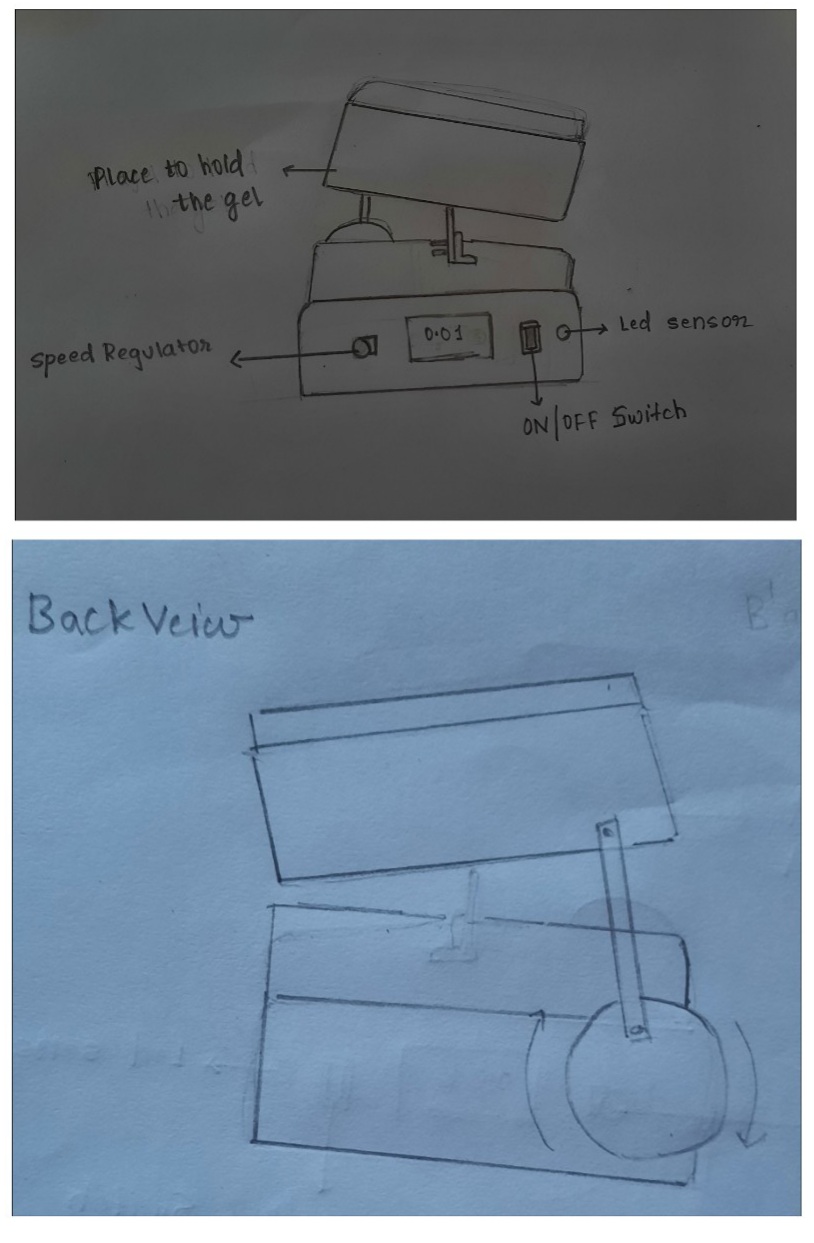 Place to hold
the gel
Speed Regulator
0.01
Led sensor
ON/OFF Switch
Back Veiw